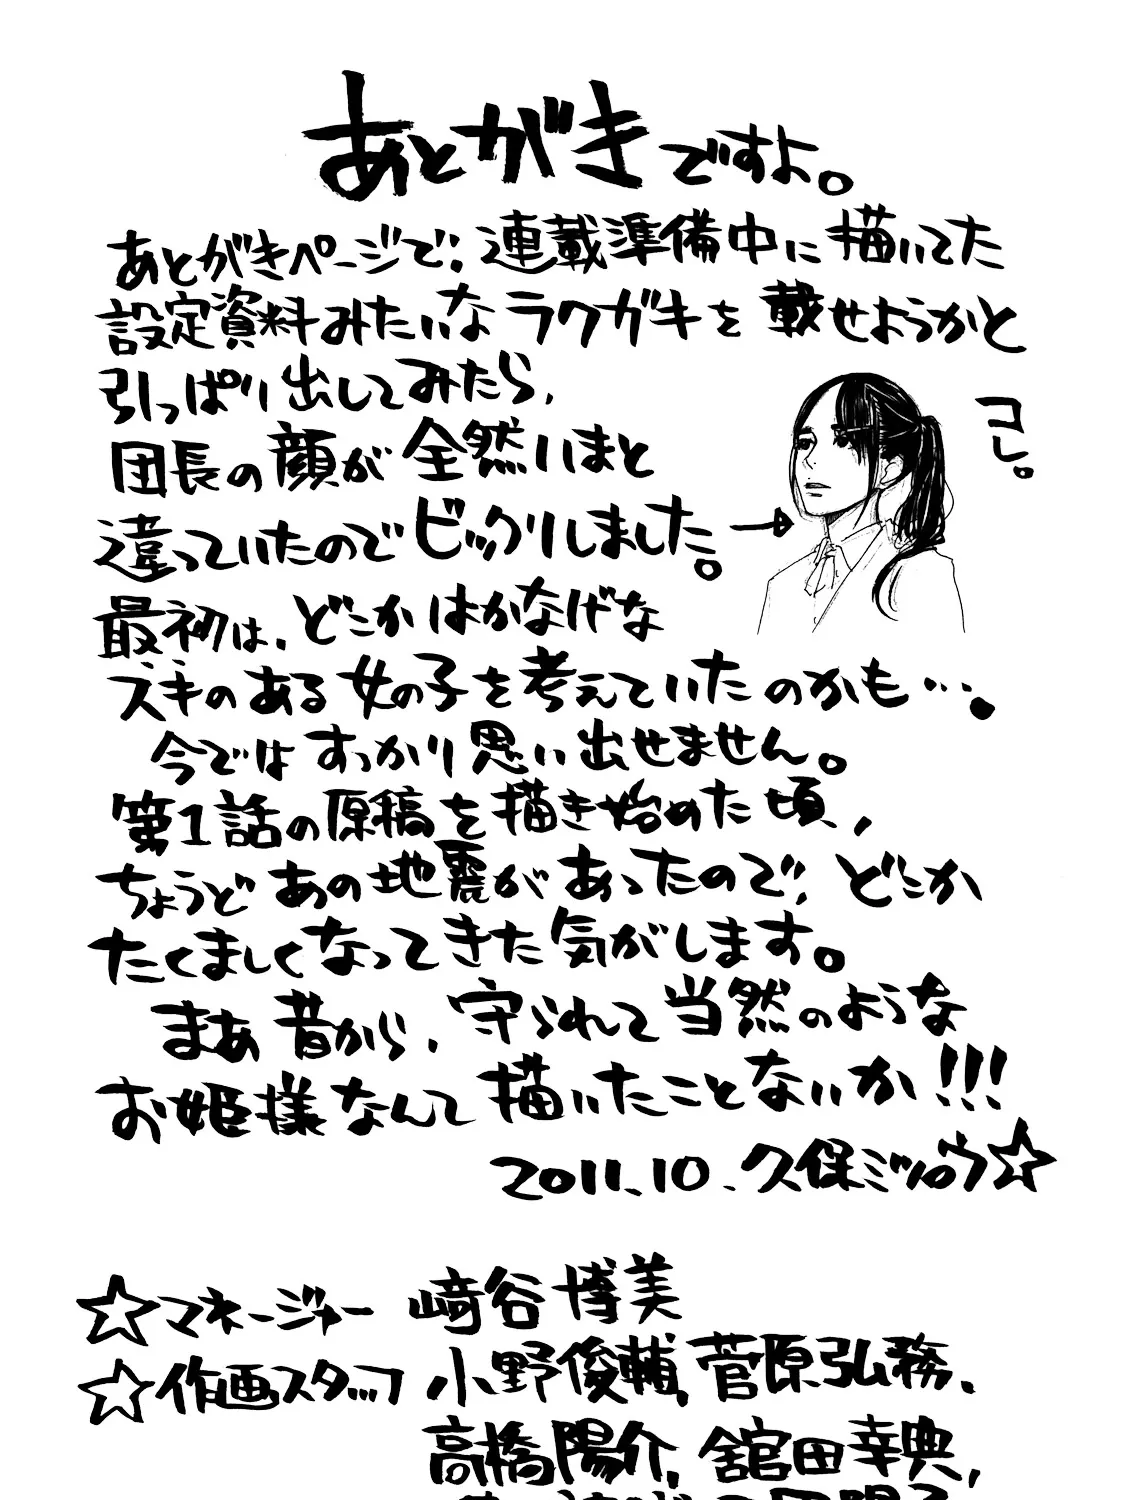 あとがきですよ。
あとがきページで、連載準備中に描いてた
設定資料みたいなラクガキを載せようかと
引っぱり出してみたら、
コレ。
団長の顔が全然いまと
違っていたのでビックリしました。→
最初は、どこかはかなげな
ズキのある女の子を考えていたのかも…。
今ではすっかり思い出せません。
第1話の原稿を描き始めた頃、
ちょうどあの地震があったので、どこか
たくましくなってきた気がします。
まあ昔から、守られて当然のような
お姫様なんて描いたことないか!!!
2011.10.久保ミツロウ☆
☆マネージャー 﨑谷博美
☆作画スタッフ 小野俊輔、菅原弘務、
高橋陽介、舘田幸典、